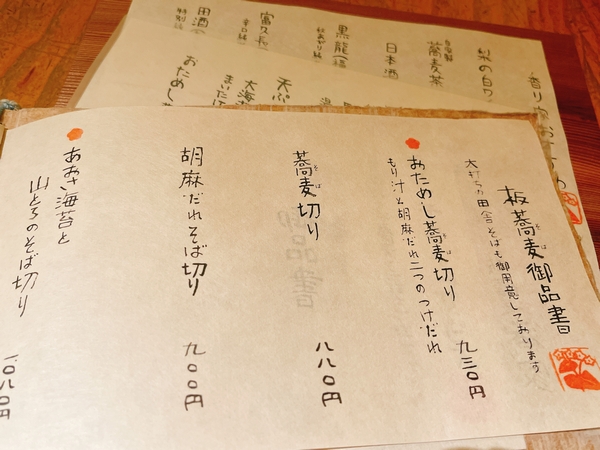 板蕎麦御品書
太打ちの田舎そばも御用意しております
おためし蕎麦切り
もり汁と胡麻だれ二つのつけだれ
九三〇円
蕎麦切り
八八〇円
胡麻だれそば切り
九〇〇円
あおさ海苔と
山とろのそば切り
一〇八〇円
梨の白ワ
蕎麦茶
日本酒
黒龍
富久
田酒
特別
天ぷ
大海
まいたけ
おためし